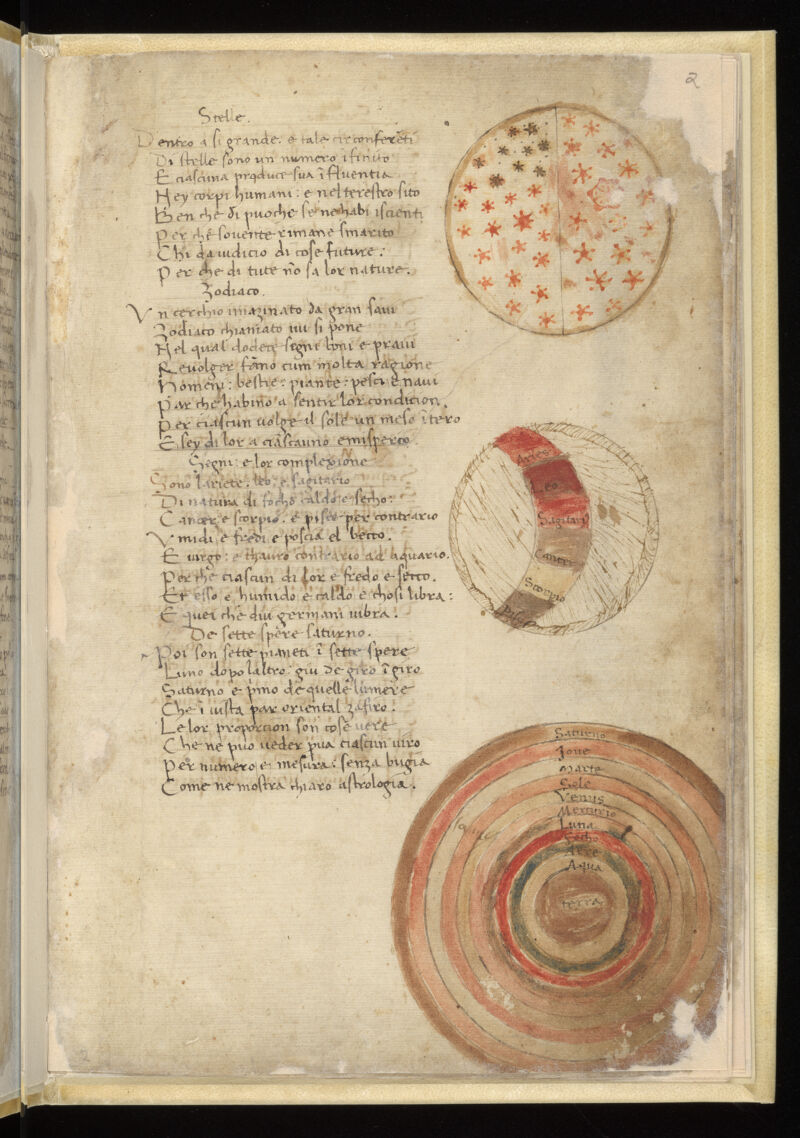 2
Stelle.
Dentro a si grande. e tale circonferẽti
Di stelle sono un numero ĩfinito
E ciascuna produce sua ĩfluentia
Ney corpi humani: e nel terestro sito
Ben che di puoche se ne habi iscienti
Per che souente rimane smarito
Chi da iudicio di cose future:
Per che di tute nõ sa lor nature.
Zodiaco.
Vn cerchio imazinato da gran saui
Zodiaco chiamato iui si pone
Nel qual dodece segni boni e praui
Reuolger fãno cum molta ragione
Homeni: bestie: piante: pesci e naui
Par che habino a sentir lor condicion.
Per ciascun uolge il sole un meso ĩtero
E sey di lor a ciascauno emisperco
Segni: e lor complexione
Sono lariete. leo. e sagitario
Di natura di focho caldo e secho:
Cancer e scorpio. e pisce per contrario
Vmidi e fredi e poscia el becco.
E uirgo: e thauro contrario ad aquario.
Per che ciascun di lor e fredo e secco.
Et esso e humido e caldo e chosi libra:
E quei che dui germani uibra.
De sette spere saturno.
Poi son sette pianeti ĩ sette spere
Luno dopo laltro: giu de giro ĩ giro
Saturno e p̃mo de quelle lumere
Che ĩ uista par oriental zafiro.
Le lor proporcion son cose uere
Che ne puo ueder pua ciascun uiro
Per numero e mesura: senza bugia
Come ne mostra chiaro astrologia.
Aries
Leo
Sagitari
Cancer
Scorpio
Pisce
Saturno
Joue
Marte
Sole
Venus
Mercurio
Luna
Focho
Aere
Aqua
terra
2